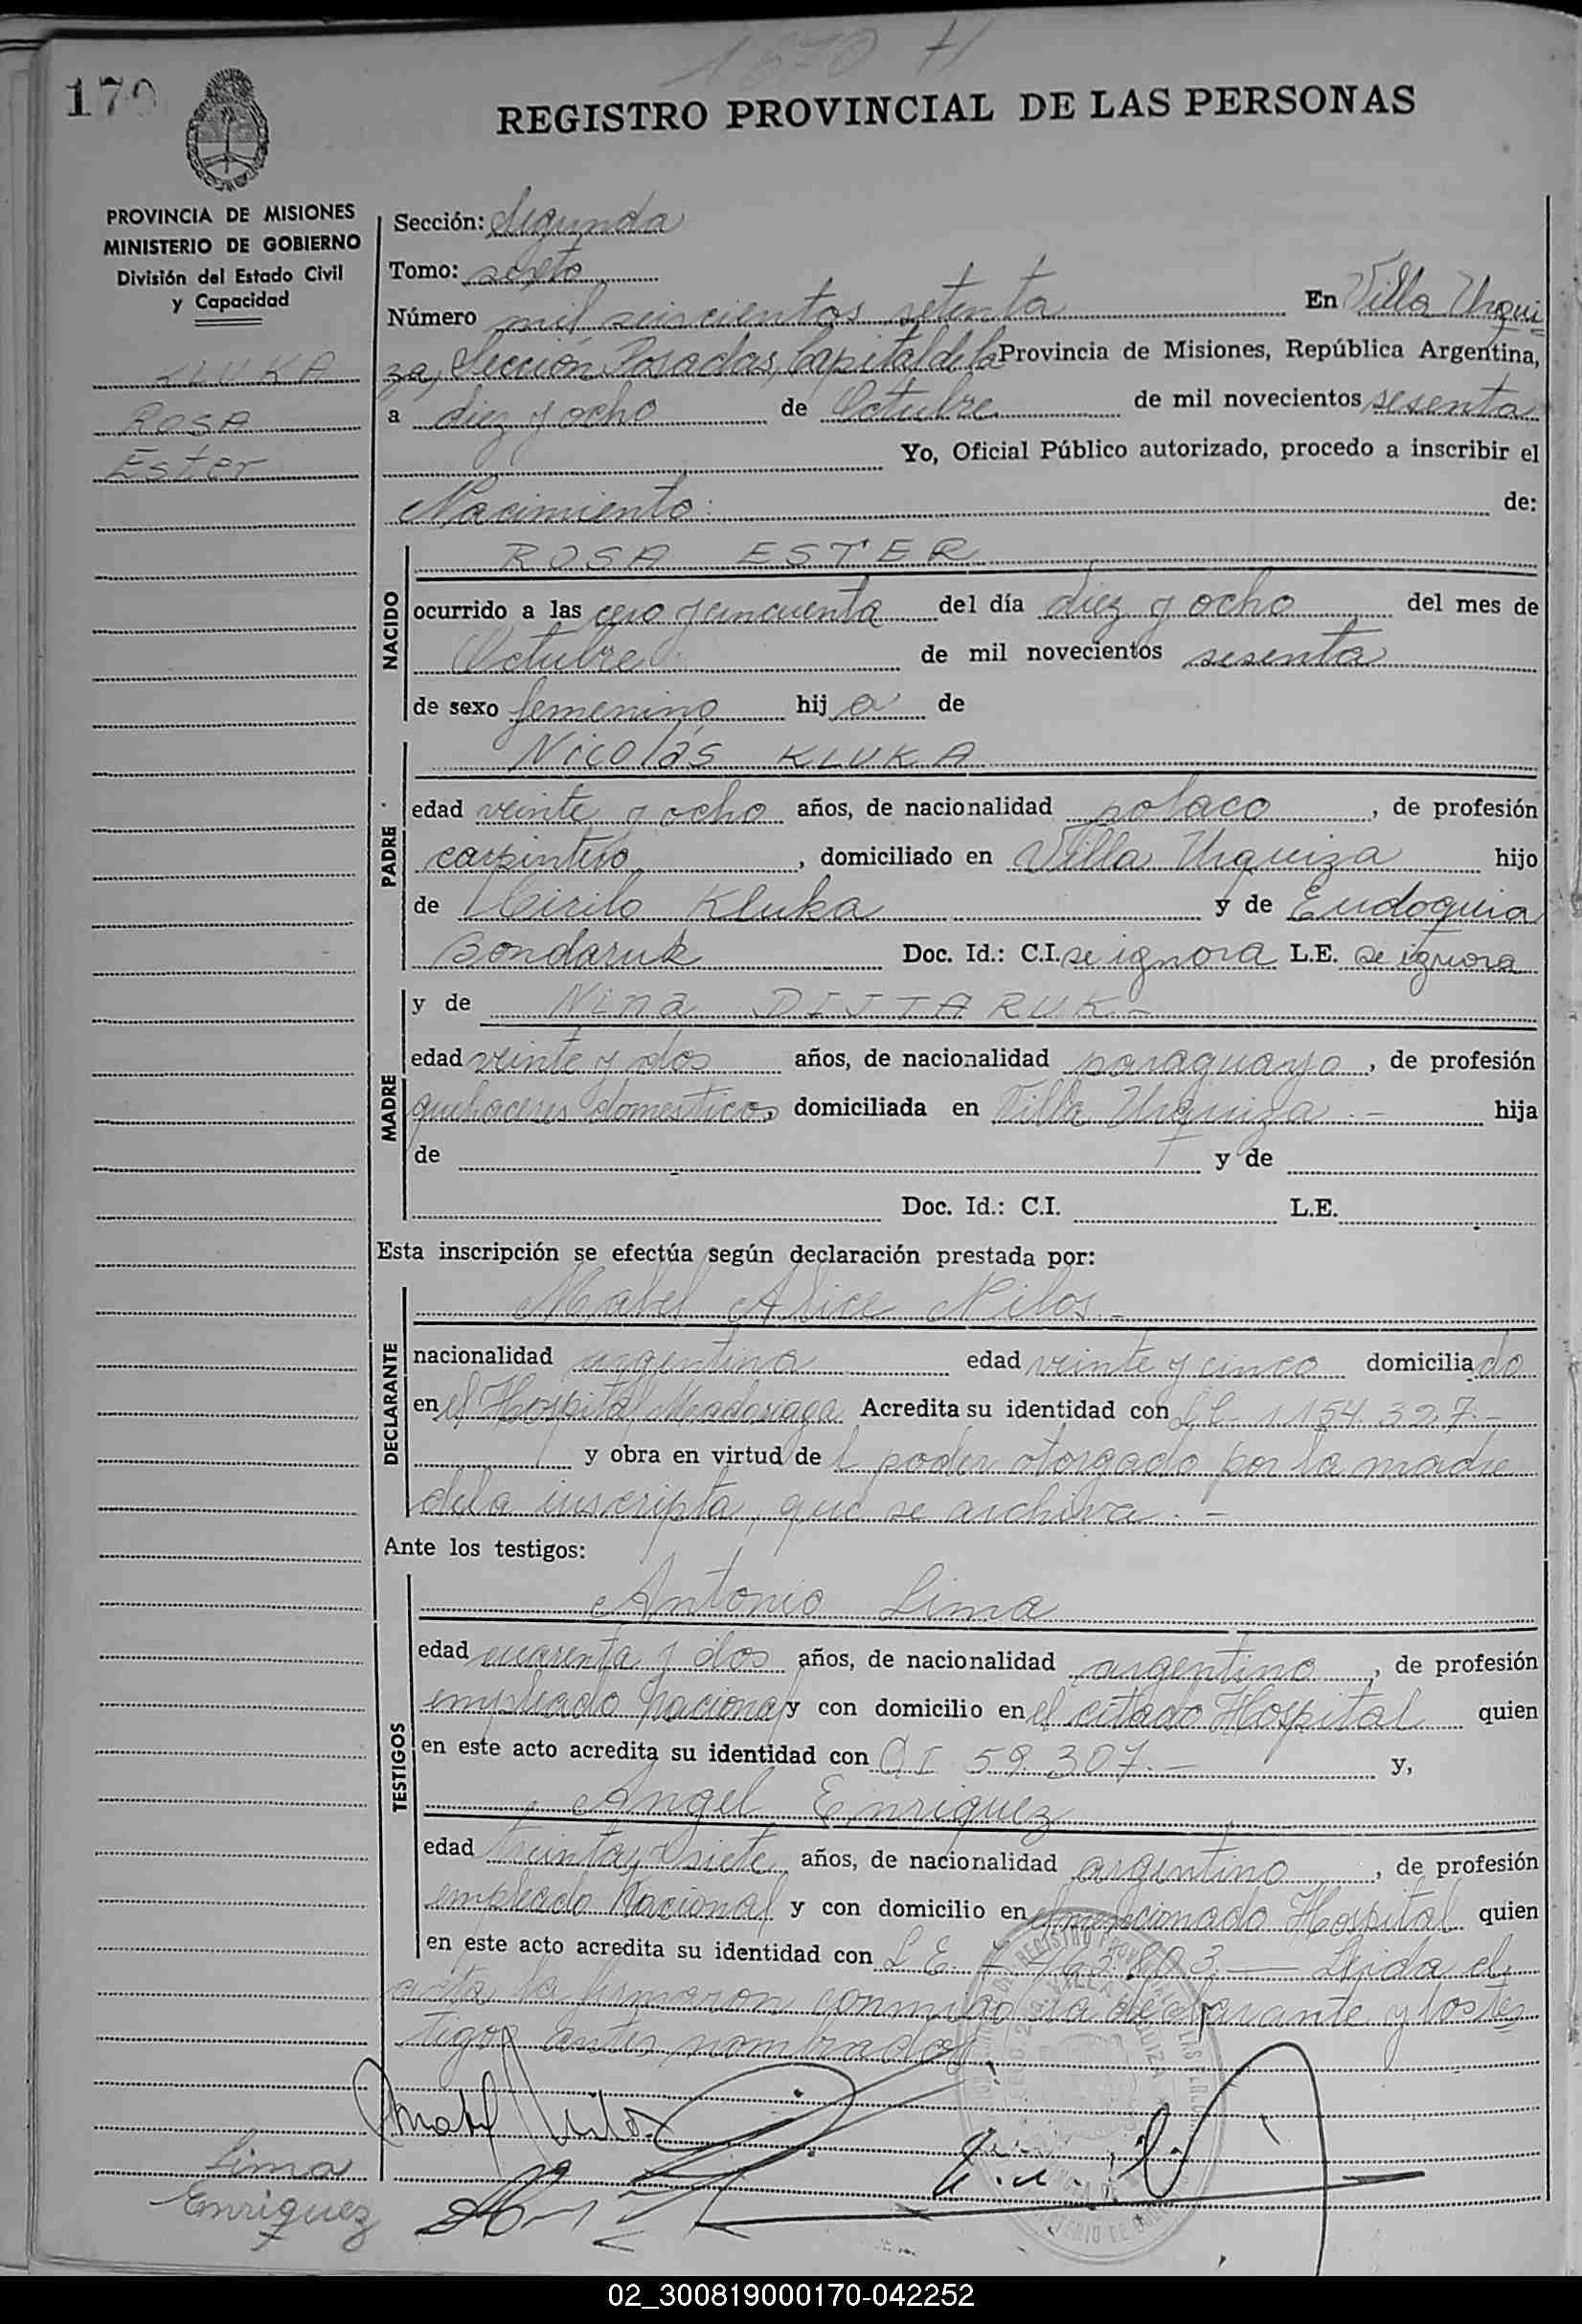 1670 H
170
REGISTRO PROVINCIAL DE LAS PERSONAS
PROVINCIA DE MISIONES
MINISTERIO DE GOBIERNO
División del Estado Civil
y Capacidad
KLUKA
ROSA
Ester
Sección: Segunda
Tomo: sexto
Número mil seiscientos setenta En Villa Urqui
za, Sección Posadas, Capital de la Provincia de Misiones, República Argentina,
a diez y ocho de Octubre de mil novecientos sesenta
Yo, Oficial Público autorizado, procedo a inscribir el
Nacimiento de:
NACIDO
ROSA ESTER
ocurrido a las cero y cincuenta del día diez y ocho del mes de
Octubre de mil novecientos sesenta
de sexo femenino hij a de
PADRE
Nicolás KLUKA
edad veinte y ocho años, de nacionalidad polaco, de profesión
carpintero, domiciliado en Villa Urquiza hijo
de Cirilo Kluka y de Eudoquia
Bondaruk Doc. Id.: C.I. se ignora L.E. se ignora
MADRE
y de Nina DITTARUK.-
edad veinte y dos años, de nacionalidad paraguaya, de profesión
quehaceres domesticos, domiciliada en Villa Urquiza.- hija
de y de
Doc. Id.: C.I. L.E.
Esta inscripción se efectúa según declaración prestada por:
DECLARANTE
Mabel Alice Nilos.-
nacionalidad argentina edad veinte y cinco domicilia do
en el Hospital Madariaga Acredita su identidad con 1154.327.-
y obra en virtud de l poder otorgado por la madre
dela inscripta, que se archiva.-
Ante los testigos:
TESTIGOS
Antonio Lima
edad cuarenta y dos años, de nacionalidad argentino, de profesión
empleado Nacional y con domicilio en el citado Hospital quien
en este acto acredita su identidad con C I 59.307.- y,
Angel Enriquez
edad treinta y siete años, de nacionalidad argentino, de profesión
empleado Nacional y con domicilio en el mencionado Hospital quien
en este acto acredita su identidad con L E. Leida el
acta la firmaron conmigo la declarante y los tes
tigos antes nombrados.
Lima
Enriquez
02_300819000170-042252